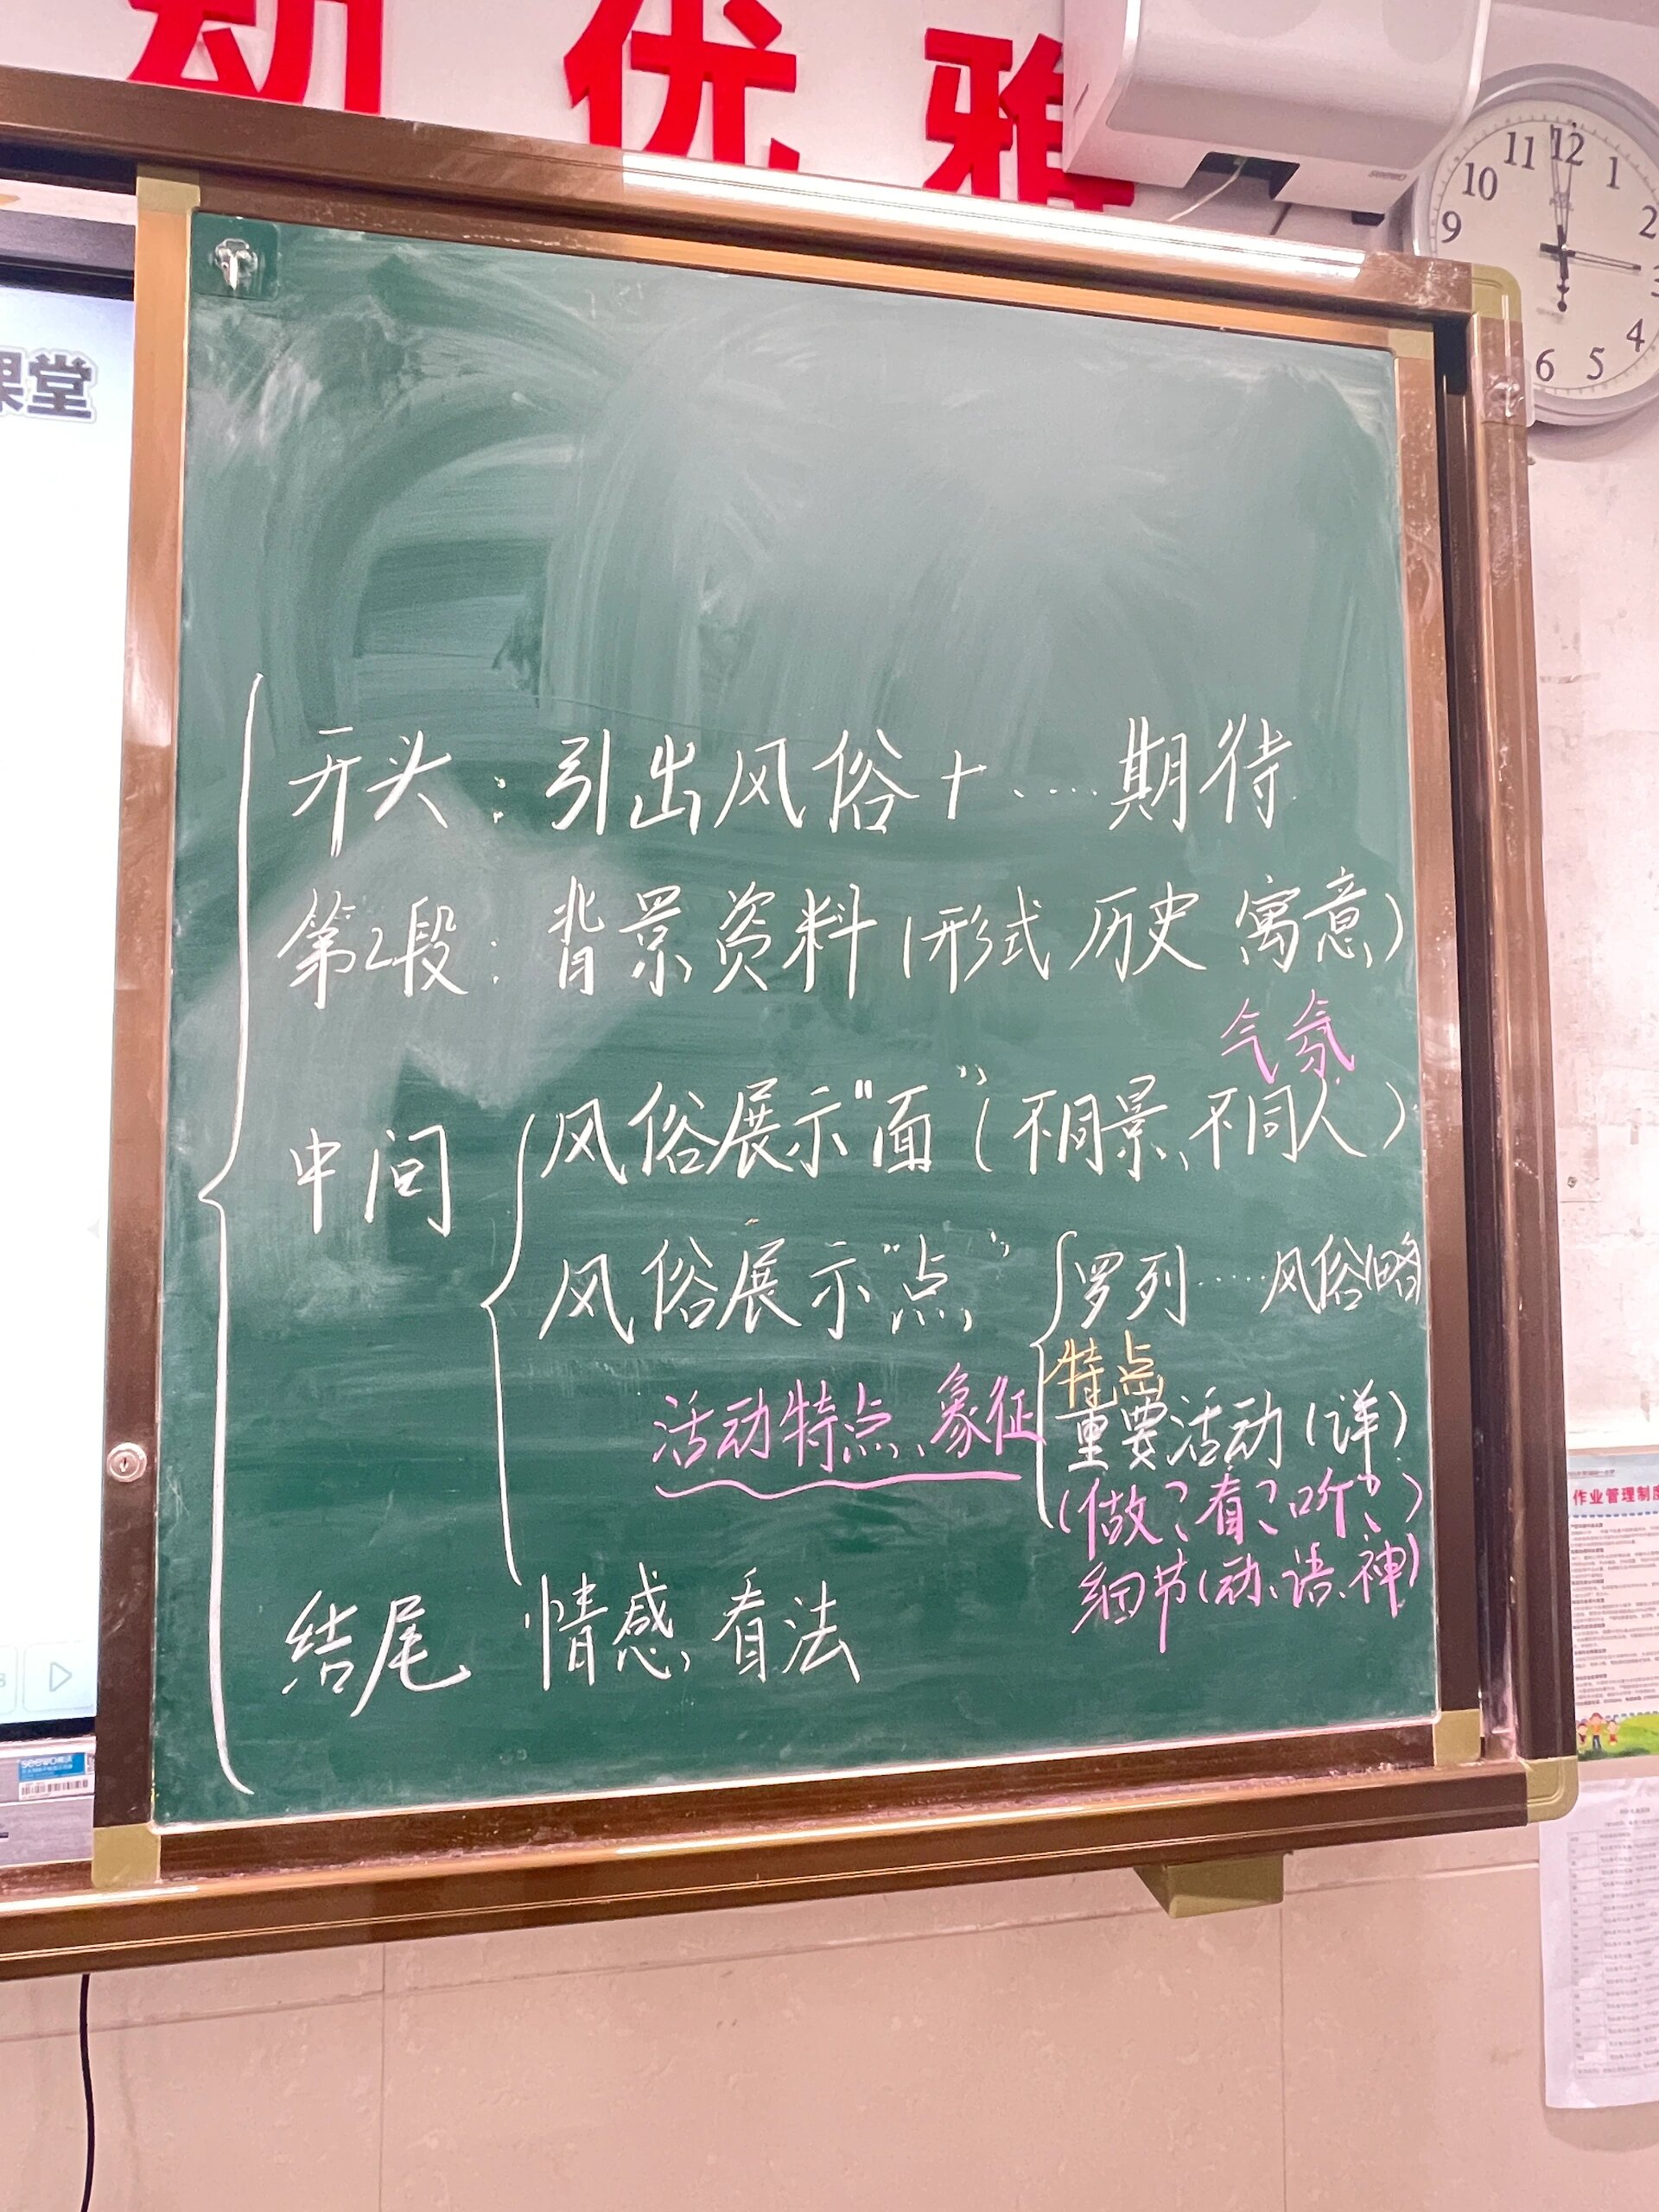 动 优 雅
11 12 1
10 2
9 3
4
6 5
课堂
开头：引出风俗＋……期待
第2段：背景资料（形式 历史 寓意）
气氛
中间
风俗展示"面"（不同景、不同人）
风俗展示"点"
罗列……风俗（略
特点
活动特点、象征
重要活动（详）
（做？看？听？）
细节（动、语、神）
结尾 情感、看法
作业管理制度
seewo